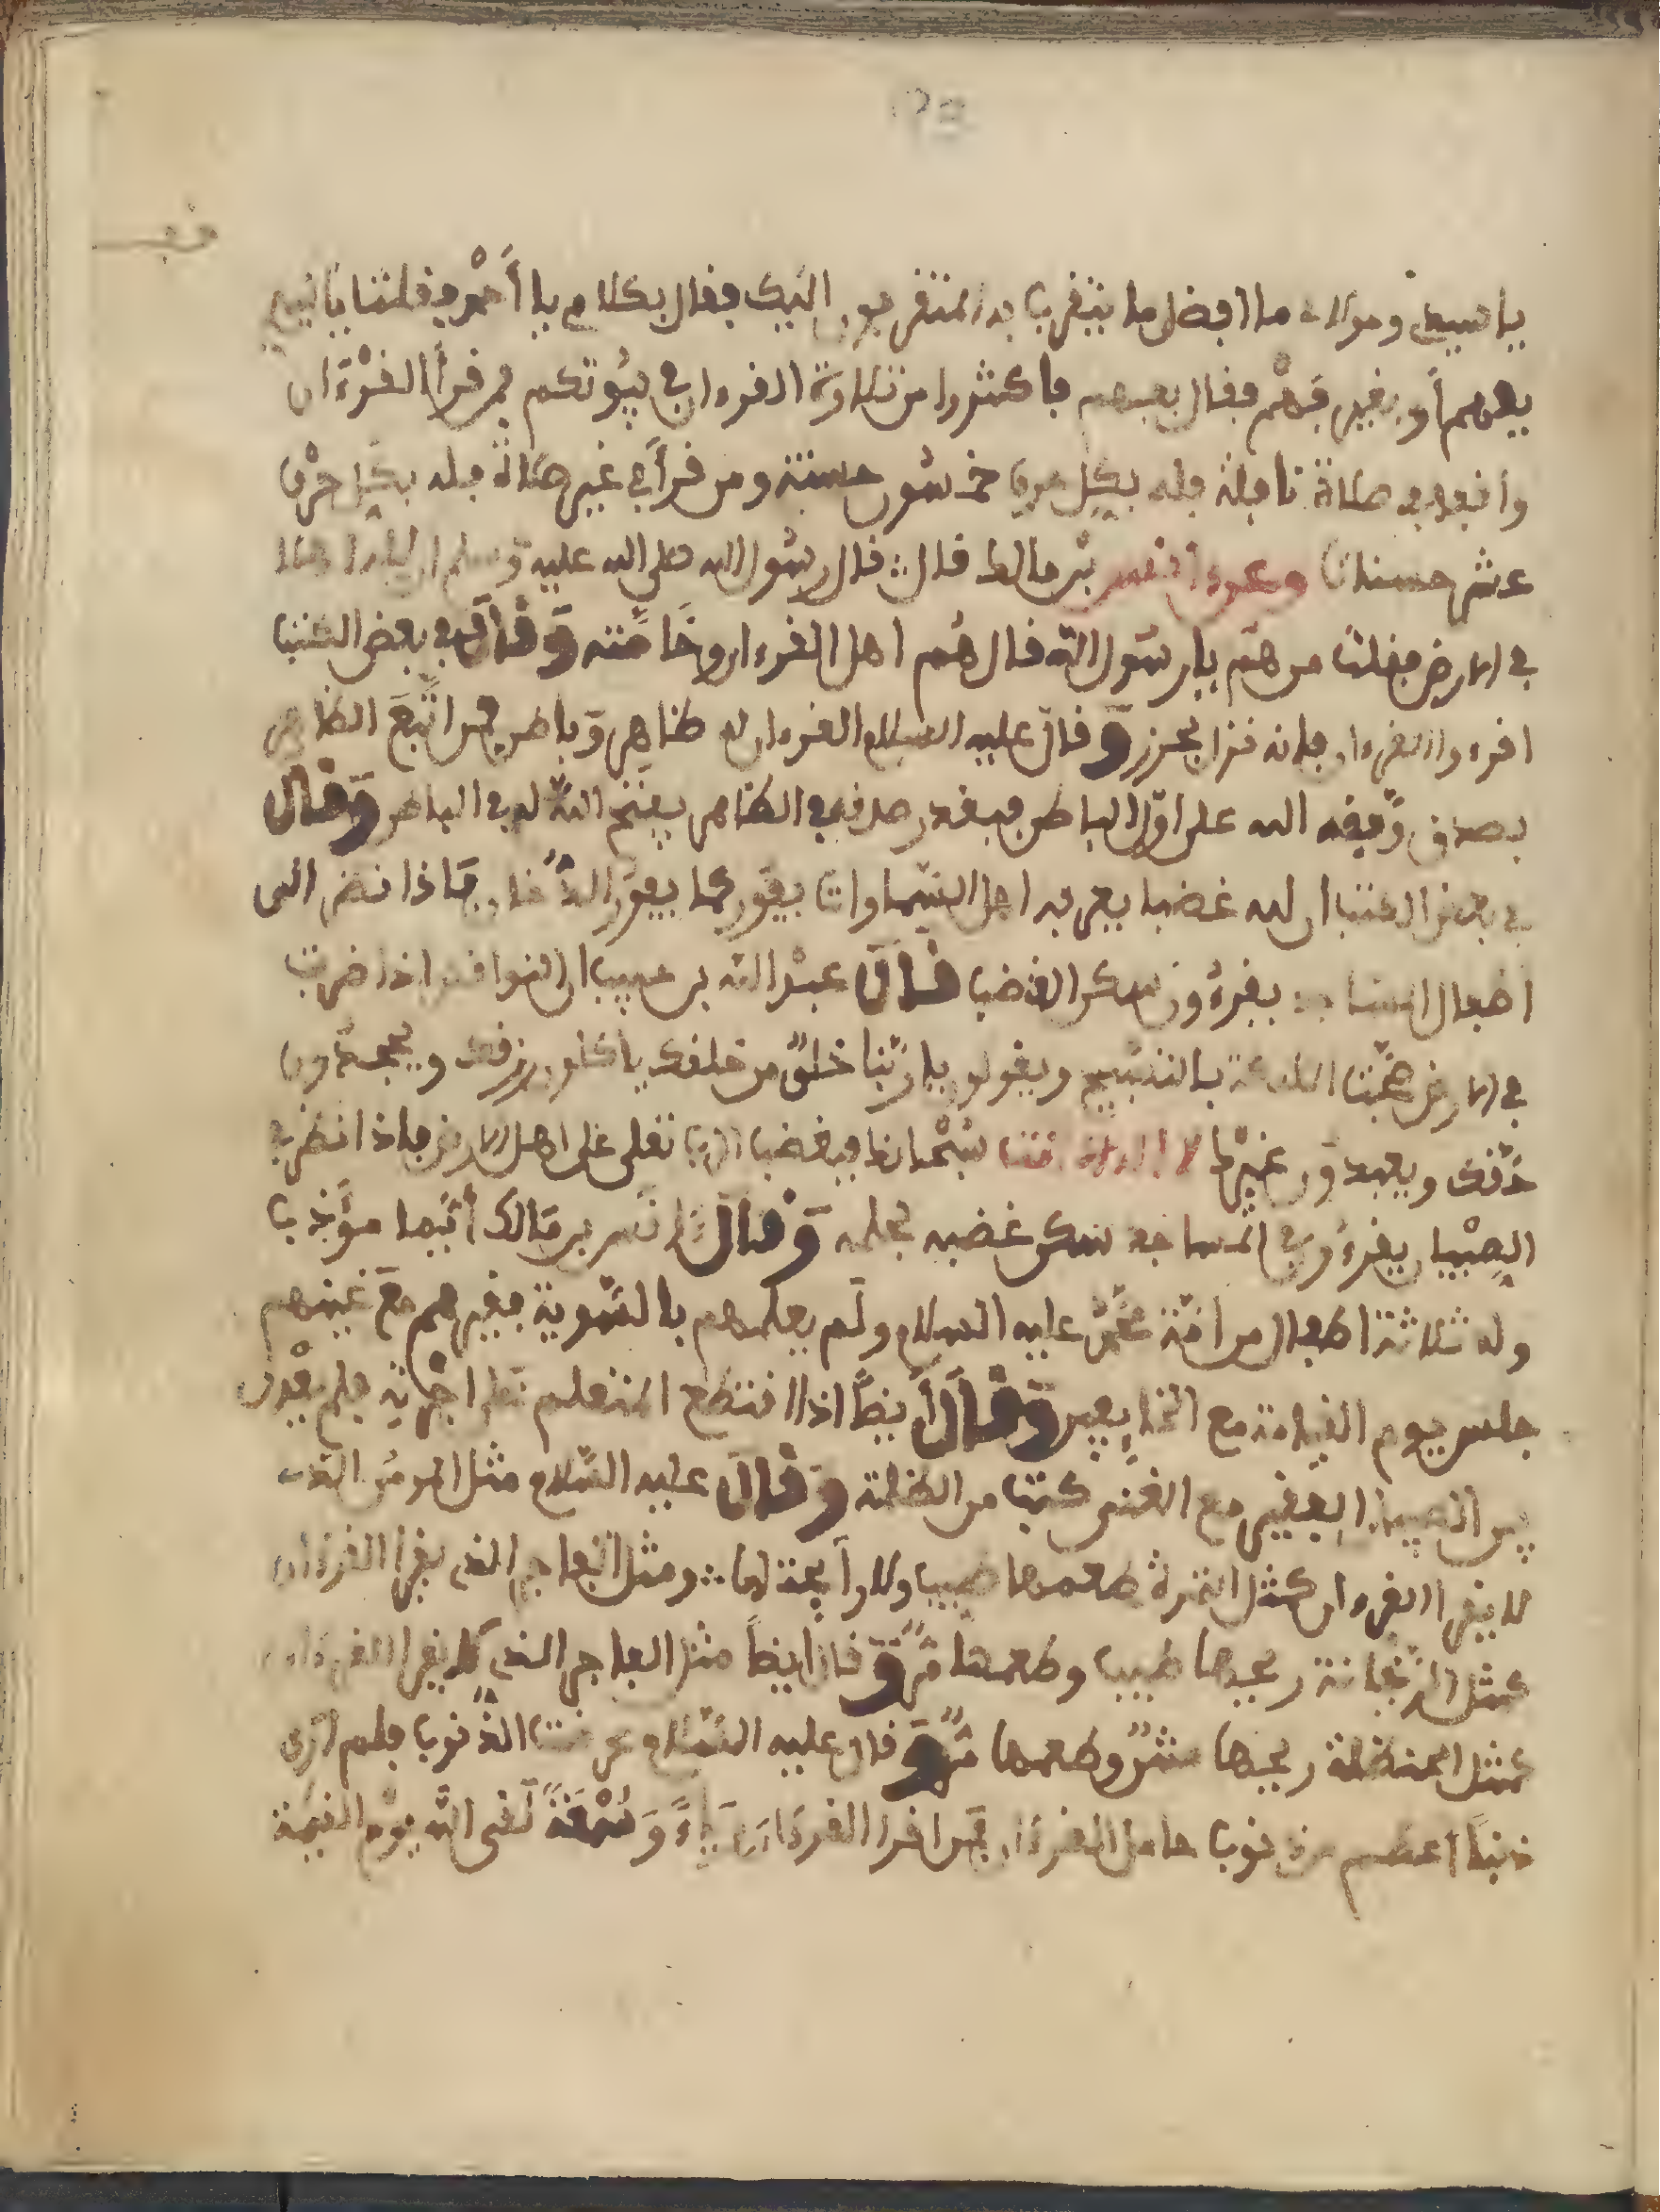 يا سيدي ومولاي ما افضل ما يتقرب به المتقربون اليك فقال بكلامي يا أحمد فقلت يا رب
بفهم أو بغير فهم فقال بفهم فاكثروا من تلاوة القرءان في بيوتكم فمن قرأ القرءان
وا في صلاة نافلة فله بكل حرف خمسون حسنة ومن قرأ في غير صلاة فله بكل حرف
عشر حسنات وعن انس بن مالك قال قال رسول الله صلى الله عليه وسلم ان لله
في الارض فقلت من هم يا رسول الله قال هم اهل القرءان وخاصته وقال في بعض الكتب
اقرءوا القرءان فانه وقال عليه السلام القرءان له ظاهر وباطن فمن اتبع الظاهر
بصدق وقفه الله على اول الباطن فبقدر صدقه في الظاهر يفتح الله له في الباطن وقال
في بعض الكتب ان لله غضبا يعرفه اهل السماوات يفور كما يفور فاذا نظر الى
اطفال المساجد يقرءون سكن الغضب قال عبد الله بن حبيب ان النواقيس اذا ضربت
في الارض الملائكة بالتسبيح ويقولون يا ربنا خلق من خلقك ياكلون رزقك ويجحدون
حقك ويعبدون غيرك لا اله الا انت سبحانك فيغضب الرب تعلى على اهل الارض فاذا نظر في
الصبيان يقرءون في المساجد سكن غضبه بحلمه وقال انس بن مالك أيما مؤذب
وله ثلاثة اطفال من امة محمد عليه السلام ولم يعلمهم بالسوية فقيرهم مع غنيهم
جلس يوم القيامة مع الخايبين وقال أيضا اذا اقتطع المتعلم على اجرته فلم يعدل
بين الصبيان الفقير مع الغني كتب من الظلمة وقال عليه السلام مثل المومن الذي
لا يقرا القرءان كمثل التمرة طعمها طيب ولا رايحة لها ومثل الفاجر الذي يقرا القرءان
كمثل الريحانة ريحها طيب وطعمها مر وقال ايضا مثل الفاجر الذي لا يقرا القرءان
كمثل الحنظلة ريحها منتن وطعمها مر وقال عليه السلام عرضت الذنوب فلم أرى
ذنبا اعظم من ذنوب حامل القرءان فمن اقرا القرءان رياء وسمعة لقى الله يوم القيمة